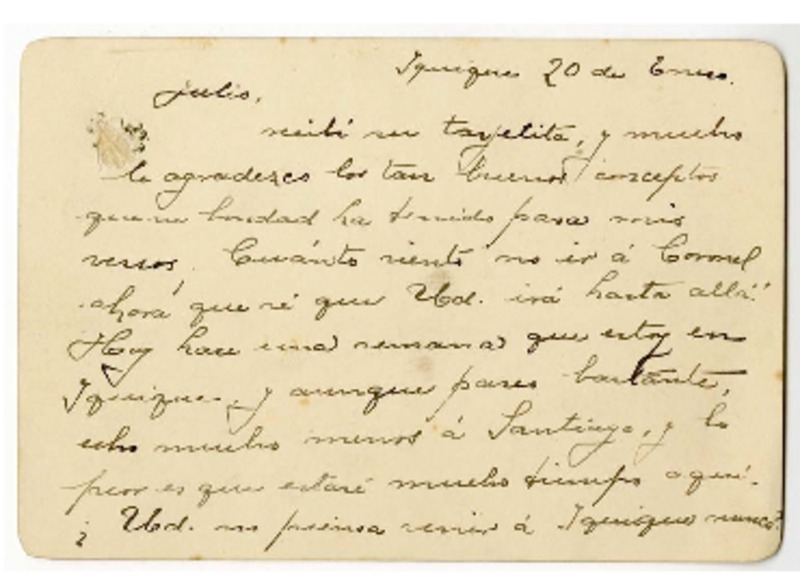 Iquique 20 de Enero.
Julio,
recibí su tarjetita, y mucho
le agradezco los tan buenos conceptos
que su bondad ha tenido para mis
versos. Cuánto siento no ir á Coronel
ahora que sé que Ud. irá hasta allá!
Hoy hace una semana que estoy en
Iquique, y aunque paseo bastante,
echo mucho menos á Santiago, y lo
peor es que estaré mucho tiempo aquí.
¿ Ud. no piensa venir á Iquique nunca?